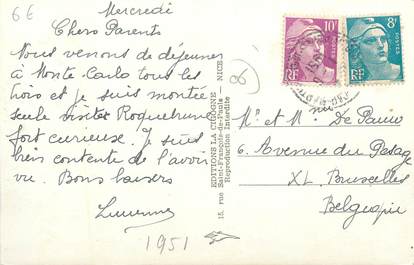 66
Mercredi
Chers Parents
Nous venons de déjeuner
à Monte-Carlo tous les
trois et je suis montée
seule visiter Roquebrune
fort curieuse. Je suis
bien contente de l'avoir
vu. Bons baisers
1951
8
EDITIONS LA CIGOGNE
15, rue Saint-François-de-Paule - NICE
Reproduction Interdite
10F
POSTES
RF
8F
POSTES
RF
Mr et Mme De Pauw
6. Avenue du Pesage
XL. Bruxelles
Belgique